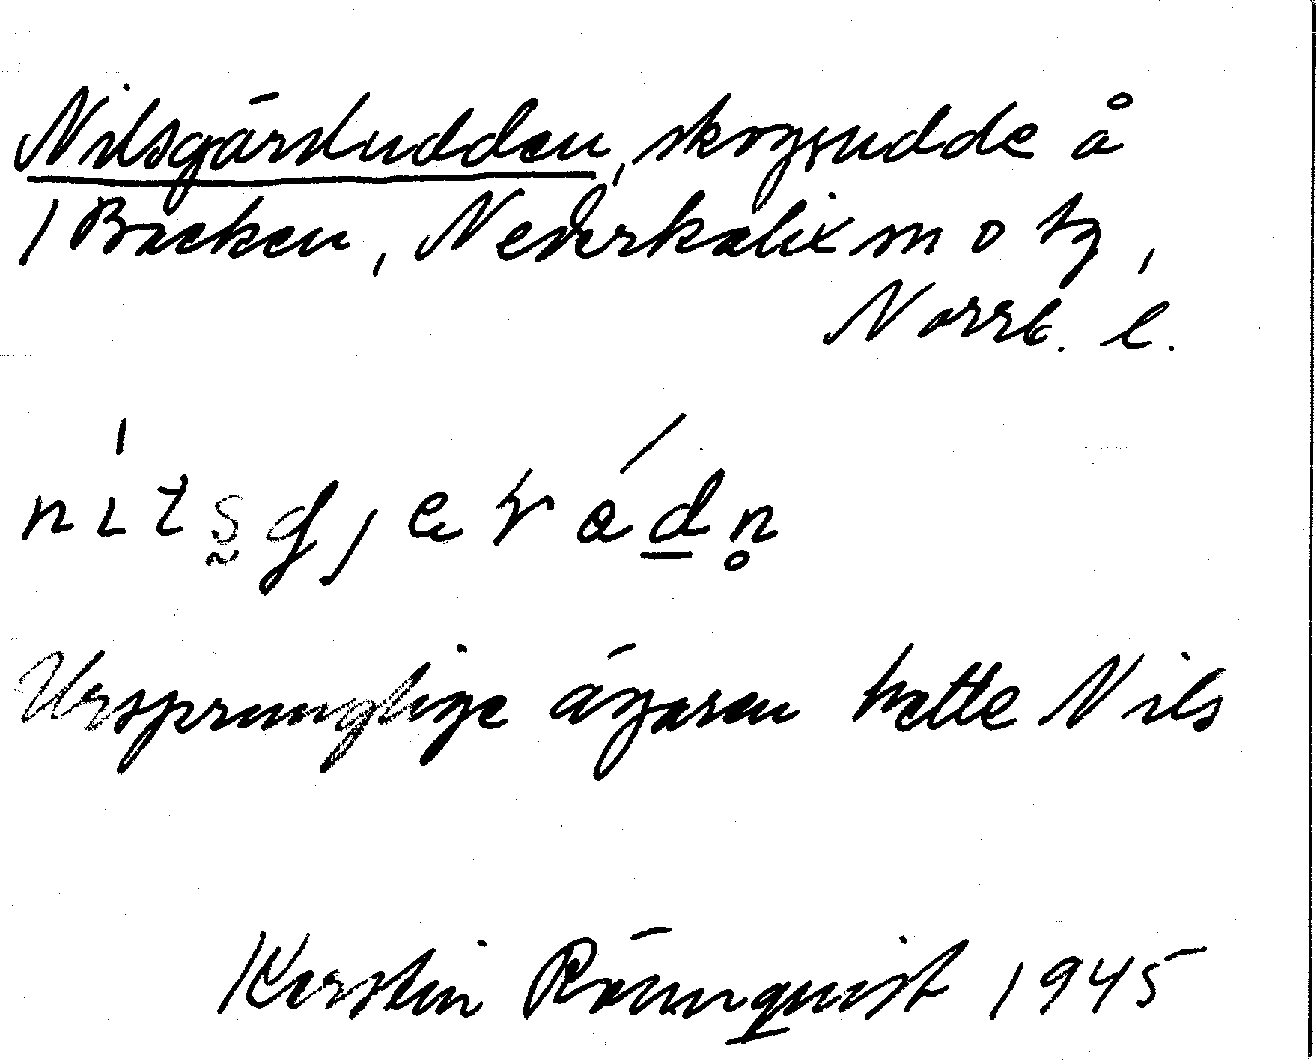 Nilsgärdudden, skogsudde å
1 Backen, Nederkalix m o tg,
Norrb. l.
Ursprunglige ägaren hette Nils
Kerstin Rönnquist 1945